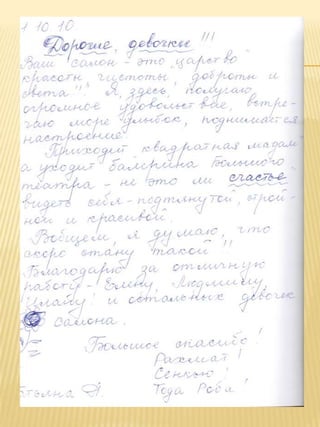 1 10 10
Дорогие, девочки!!!
Ваш салон - это "царство
красоты чистоты, доброты и
света"! Я, здесь, получаю
огромное удовольствие, встре-
чаю море улыбок, поднимается
настроение.
Приходит квадратная мадам
а уходит балерина Большого
театра - не это ли счастье
видеть себя - подтянутой, строй-
ной и красивой.
Вобщем, я думаю, что
скоро стану такой"!!
Благодарю за отличную
работу - Елену, Людмилу,
и остальных девочек
салона.
Большое спасибо!
Рахмат!
Сенкью!
Тода Роба!
Татьяна А.